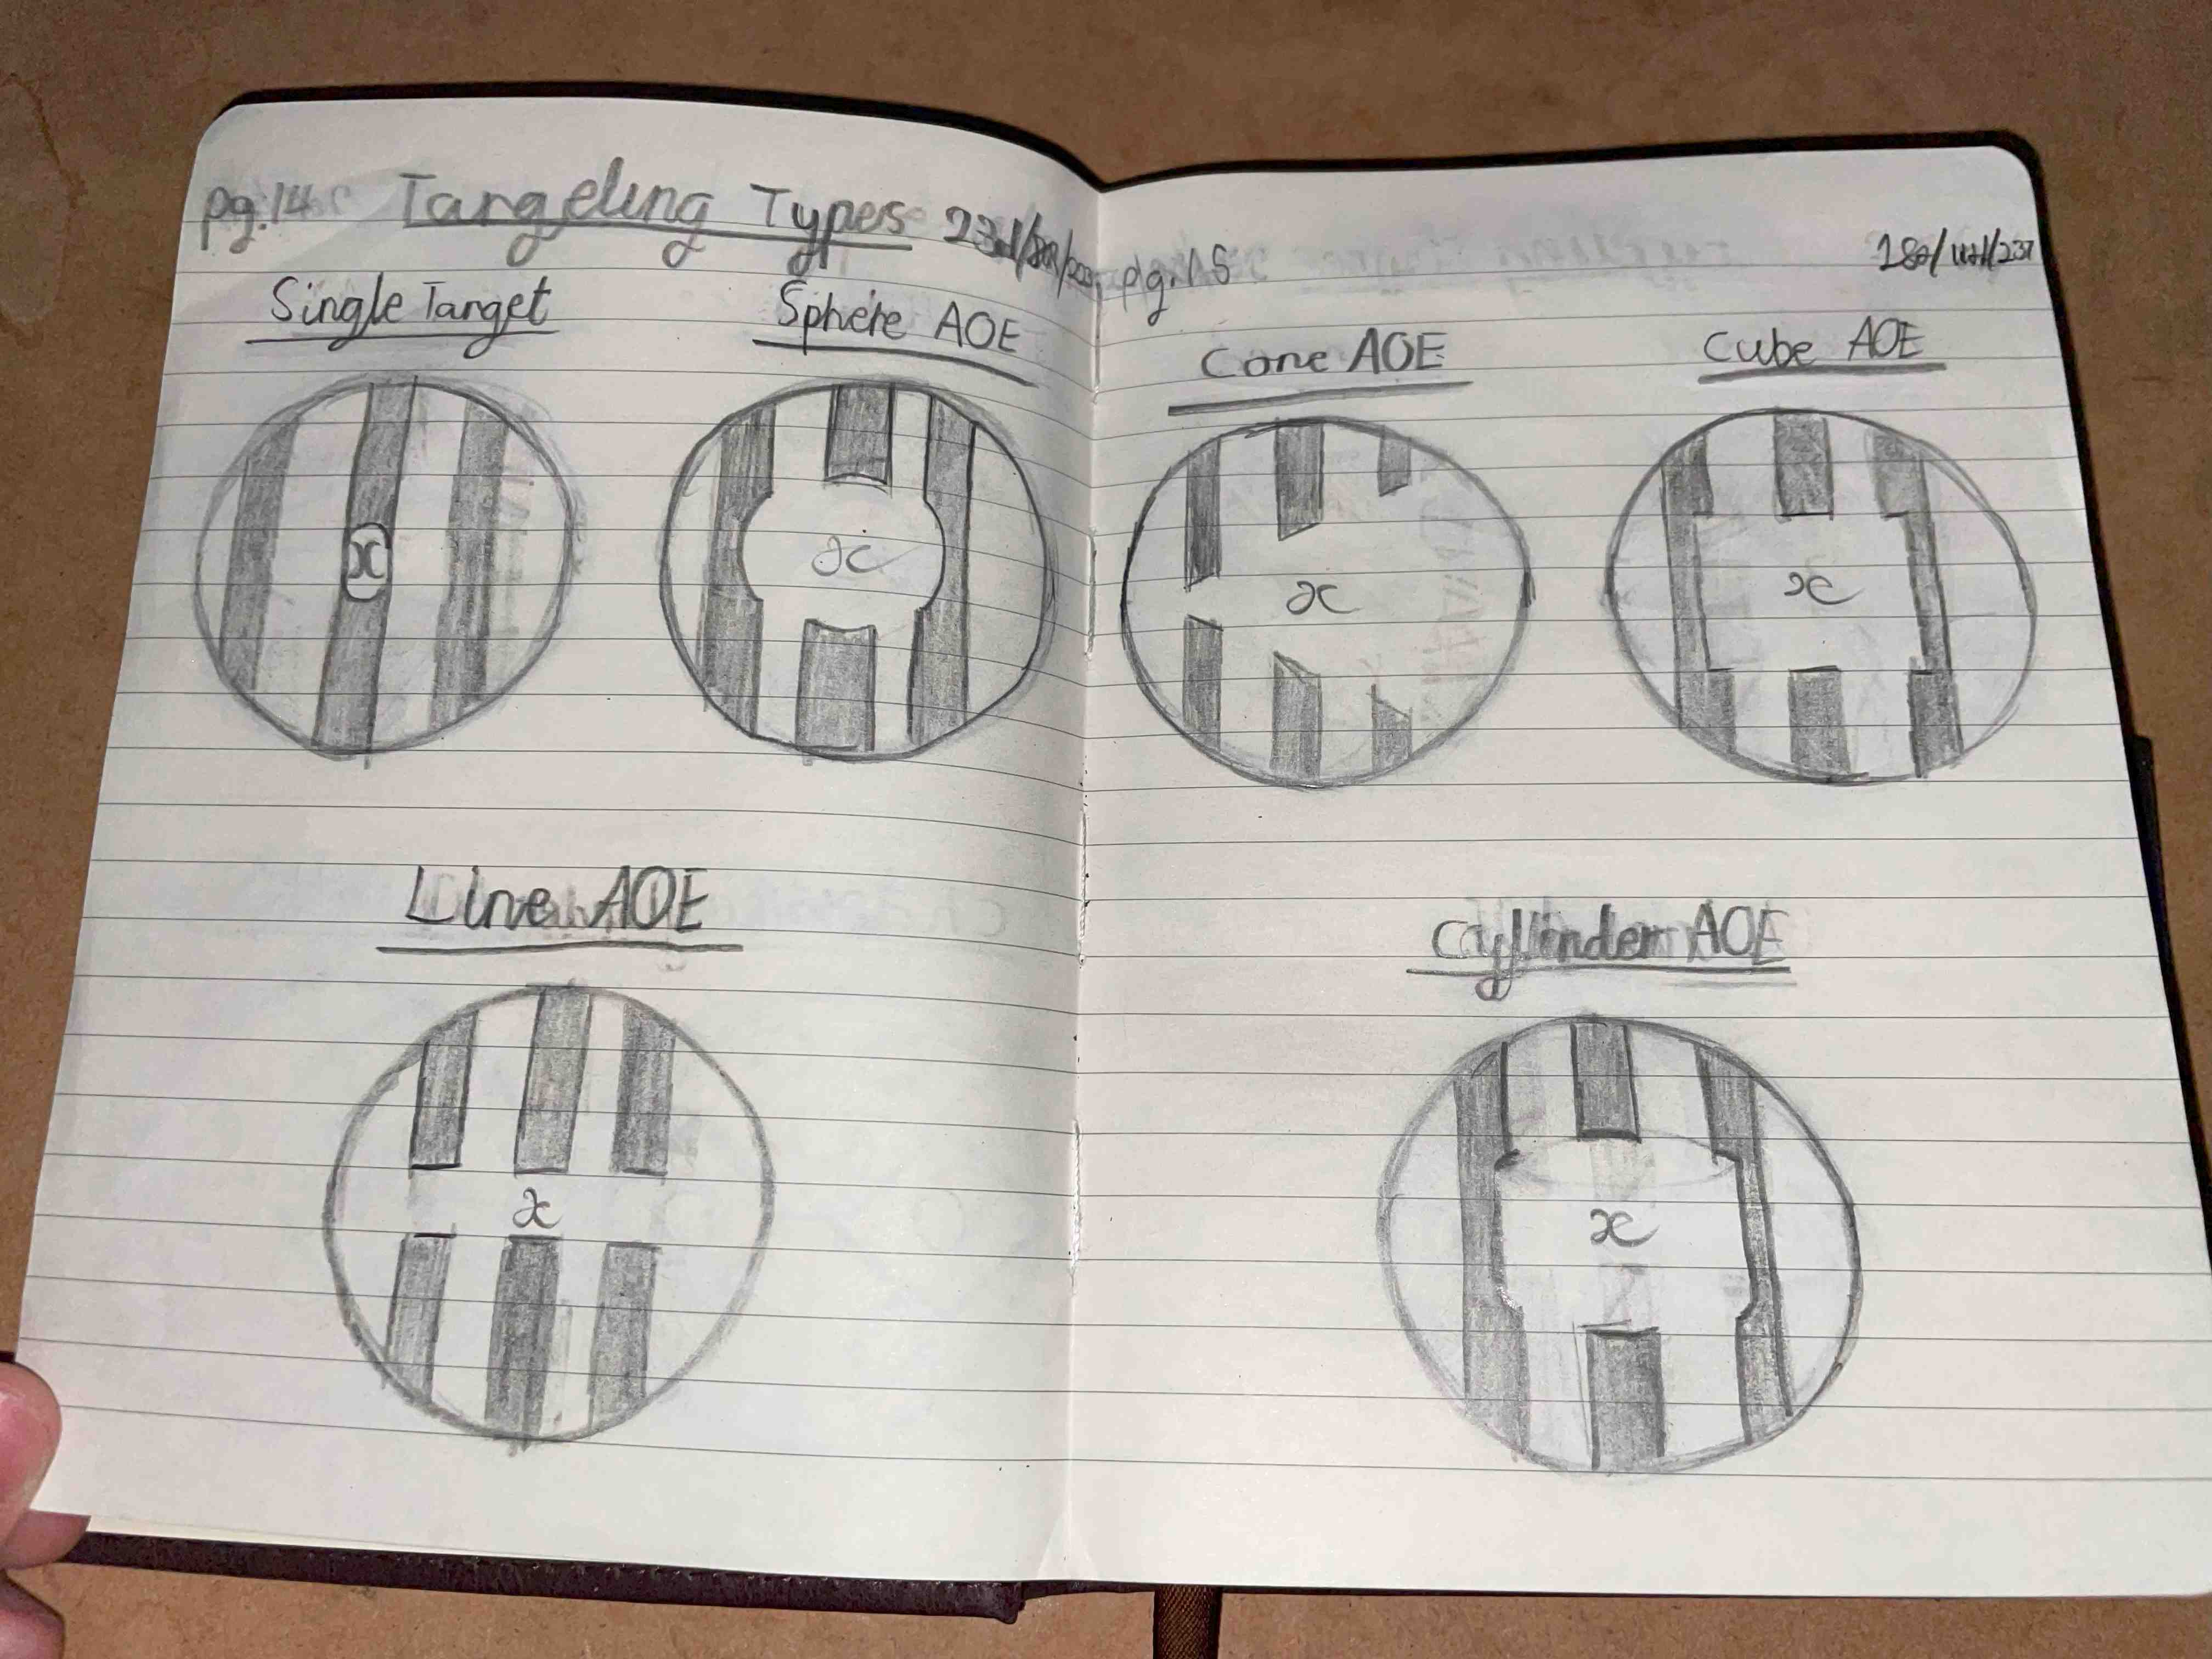 pg.14 Targeting Types
Single Target
Sphere AOE
x
x
Line AOE
x
pg.15
Cone AOE
Cube AOE
x
x
Cyllinder AOE
x